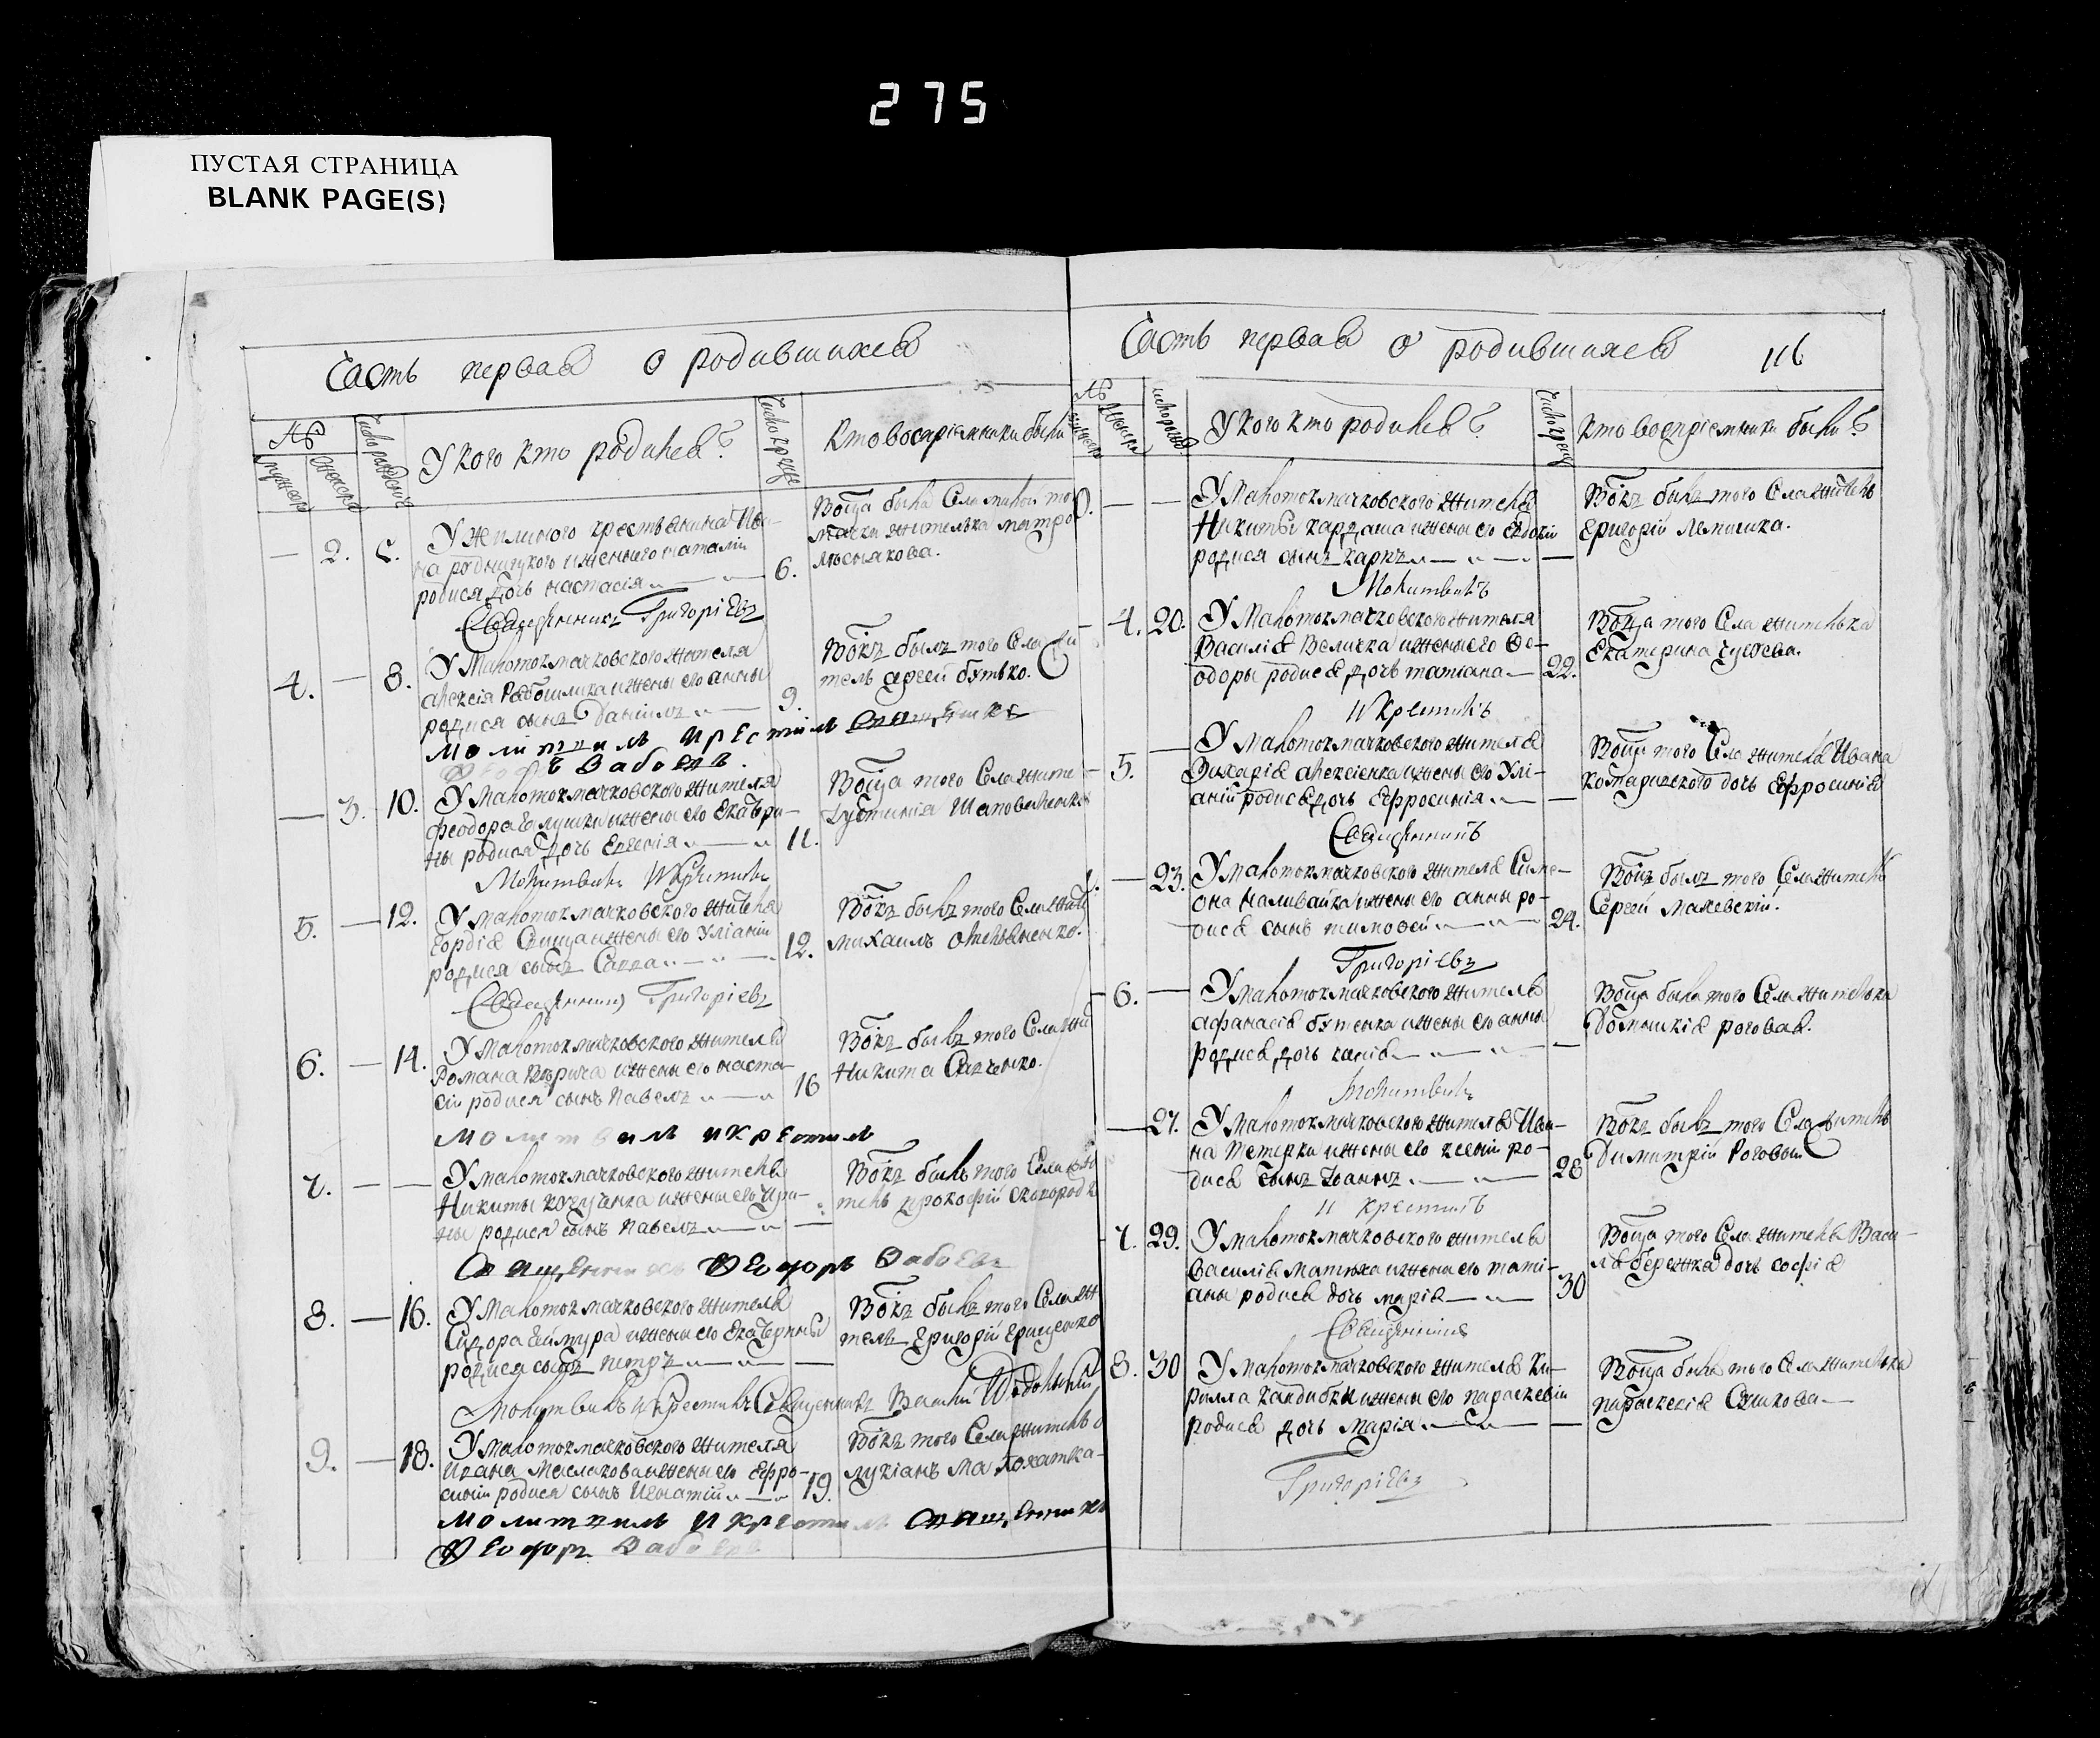 275
ПУСТАЯ СТРАНИЦА
BLANK PAGE(S)
Часть первая о родившихся
№
Число рождения
У кого кто родился?
Число крещ
кто восприемники были
2. 6.
У жилого крестьянина Ива-
на жены его наталіи
родися дочь настасія
6.
Воспца была Села малои то
мачки жителька
Священникъ Григоріевъ
4. 8.
У Малотокмачковского жителя
алексія жены его анны
родися сынъ Даніилъ
9.
Вокъ былъ того Села жи
тель сергей бутько.
молитвилъ и крестилъ Священникъ
Феодоръ Бабаевъ.
3. 10.
У Малотокмачковского жителя
феодора Галушки жены его Екатери-
ны родися дочь Евгенія
11.
Воспца того Села жите
Іустинія Шаповаленкова
Молитвилъ И Крестилъ
5. 12.
У малотокмачковского жителя
Гордія жены его Уліаніи
родися сынъ Савва
12.
Вокъ былъ того Села жите
михаилъ
Священникъ Григоріевъ
6. 14.
У Малотокмачковского жителя
Романа жены его наста-
сіи родися сынъ Павелъ
16
Вокъ былъ того Села жи
Никита Савченко.
молитвилъ и крестилъ
7.
У малотокмачковского жителя
Никиты жены его Ири-
ны родися сынъ Павелъ
Вокъ былъ того Села жи
тель прокофій скоропод
Священникъ Феодоръ Бабаевъ
8. 16.
У Малотокмачковского жителя
Сидора жены его Екатерины
родися сынъ петръ
Вокъ былъ того Села жи
тель Григорій Гриценко
Молитвилъ и Крестилъ Священникъ
9. 18.
У Малотокмачковского жителя
Ивана Маслакова жены его Ефро-
синіи родися сынъ Игнатій
19.
Вокъ того Села житель
лукіанъ
молитвилъ И крестилъ Священникъ
Феодоръ Бабаевъ
Часть первая о родившихся 116
№
У кого кто родился?
кто воспріемники были?
У Малотокмачковского жителя
Никиты кардаша жены его Евдокіи
родися сынъ карпъ
Вокъ былъ того Села житель
Григорій Лемишка.
Молитвилъ
4. 20.
У Малотокмачковского жителя
Василія Величка жены его Фе-
одоры родися дочь татіана
22.
Воспца того Села жителька
Екатерина
И Крестилъ
5.
У Малотокмачковского жителя
Захарія алексіенка жены его Улі-
аніи родися дочь Ефросинія
Воспца того Села жителя Ивана
дочь Ефросинія
Священникъ
23.
У Малотокмачковского жителя Симе-
она Наливайка жены его анны ро-
дися сынъ тимофей
24.
Вокъ былъ того Села житель
Сергей Маневскій.
Григоріевъ
6.
У Малотокмачковского жителя
афанасія бутенка жены его анны
родися дочь
Воспца была того Села жителька
Домникія роговая.
Молитвилъ
27.
У Малотокмачковского жителя Ива-
на тетерки жены его ксеніи ро-
дися сынъ Іоаннъ
28
Вокъ былъ того Села житель
Димитрій Роговый
и крестилъ
7. 29.
У Малотокмачковского жителя
василія матюха жены его тати-
аны родися дочь марія
30
Воспца того Села жителя Васи-
лія бережка дочь софія
Священникъ
8. 30
У Малотокмачковского жителя Ки-
рилла кандибки жены его параскевіи
родися дочь Марія
Воспца была того Села жителька
параскевія
Григоріевъ